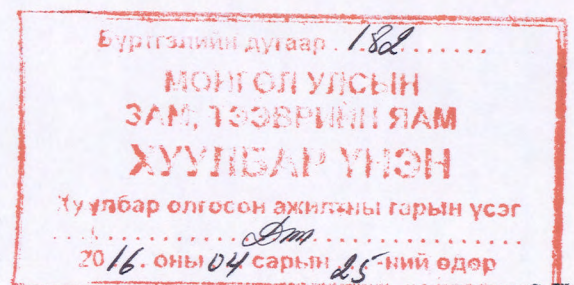 Бүртгэлийн дугаар . 182 . . . . . .
МОНГОЛ УЛСЫН
ЗАМ, ТЭЭВРИЙН ЯАМ
ХУУЛБАР ҮНЭН
Хуулбар олгосон ажилтны гарын үсэг
2016. оны 04 сарын 25-ний өдөр